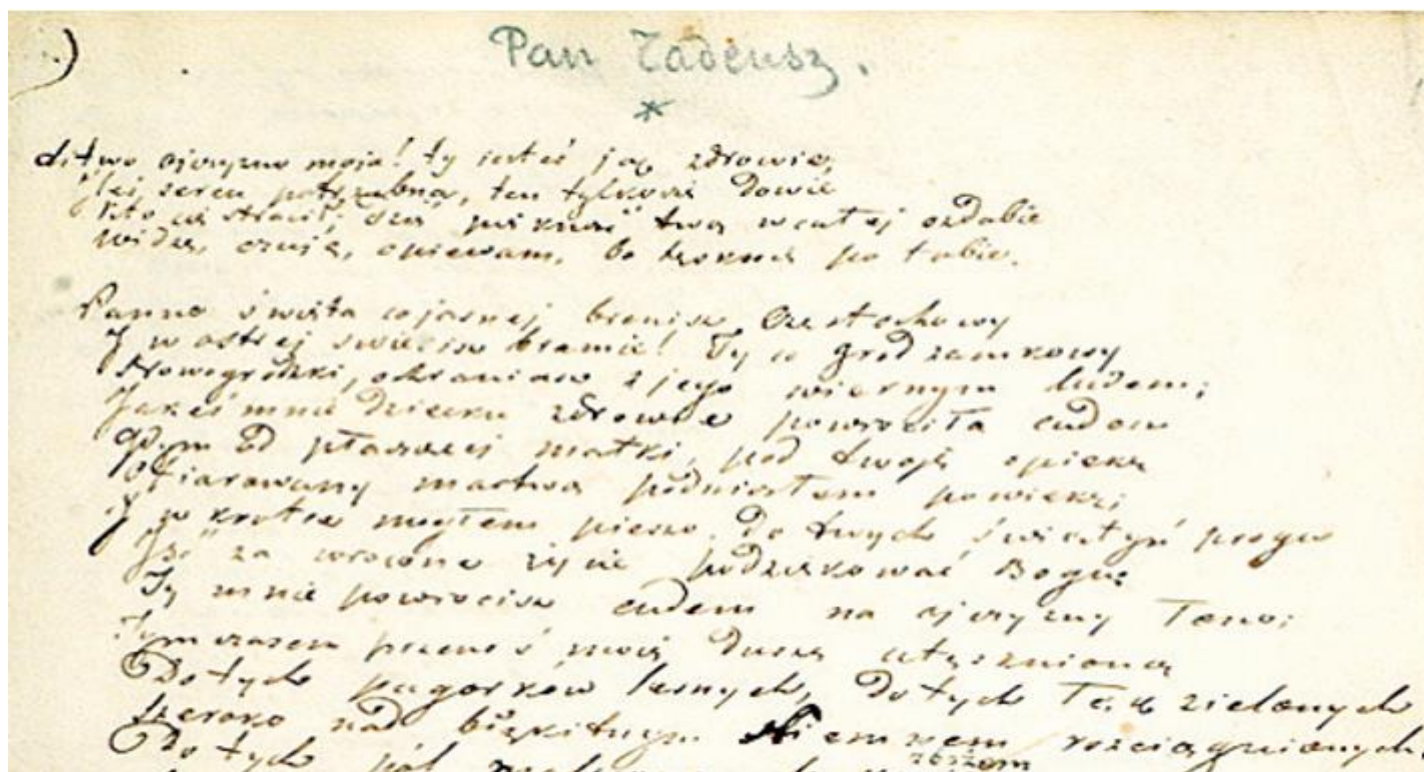 Pan Tadeusz.
*
Litwo ojczyzno moja! ty jesteś jak zdrowie,
sercu potrzebna, ten tylko dowie
Kto cię stracił; Dziś piękność twą w całej ozdobie
widzę, czuję, opiewam, bo tęsknię po tobie.
Panno święta co jasnej bronisz Częstochowy
I w ostrej świecisz bramie! Ty co gród zamkowy
Nowogródzki, ochraniasz z jego wiernym ludem;
Jakeś mnie dziecko zdrowie powróciła cudem
Gdym od płaczącej matki, pod twoję opiekę
Ofiarowany martwą podniosłem powiekę;
I wkrótce mogłem pieszo, do twych świątyń progu
Iść za wrócone życie podziękować Bogu
Ty mnie powrócisz cudem na ojczyzny łono;
Tymczasem przenoś moją duszę utęsknioną
Do tych pagórków leśnych, do tych łąk zielonych
szeroko nad błękitnym Niemnem rozciągnionych.
Do tych pól zbożem